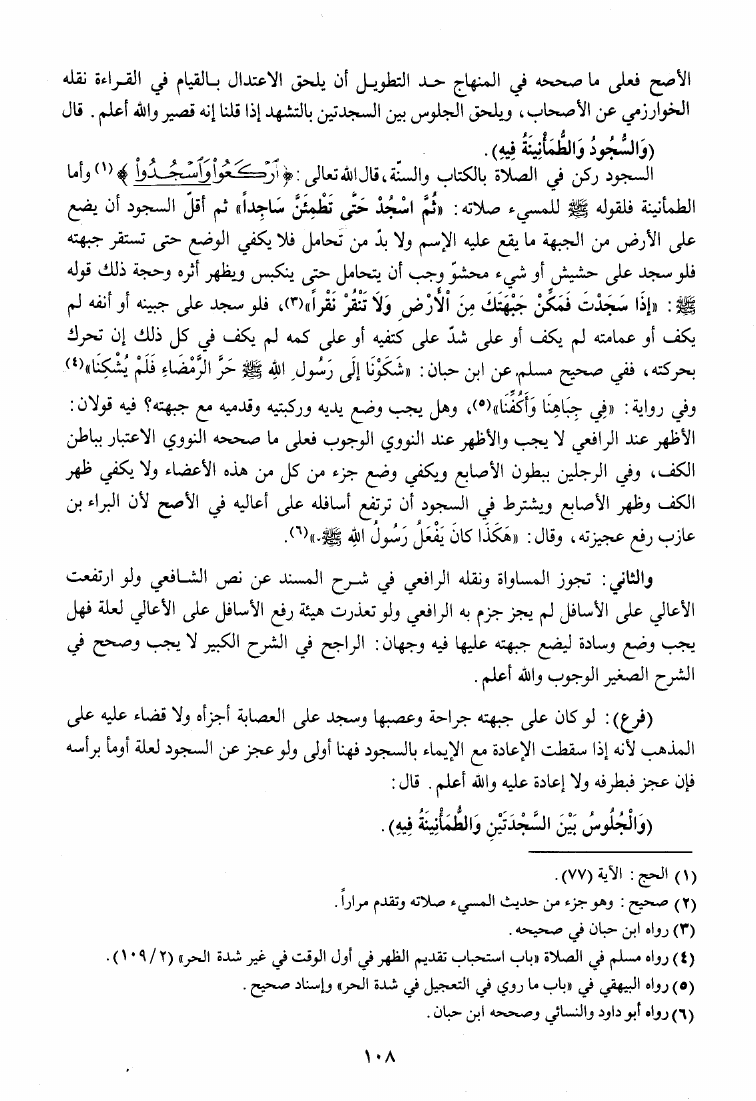 الأصح فعلى ما صححه في المنهاج حد التطويل أن يلحق الاعتدال بالقيام في القراءة نقله
الخوارزمي عن الأصحاب، ويلحق الجلوس بين السجدتين بالتشهد إذا قلنا إنه قصير والله أعلم. قال
(وَالسُّجُودُ وَالطُّمَأْنِينَةُ فِيهِ).
السجود ركن في الصلاة بالكتاب والسنّة، قال الله تعالى: ﴿ٱرْكَعُوا۟ وَٱسْجُدُوا۟﴾(١) وأما
الطمأنينة فلقوله ﷺ للمسيء صلاته: «ثُمَّ اسْجُدْ حَتَّى تَطْمَئِنَّ سَاجِداً» ثم أقلّ السجود أن يضع
على الأرض من الجبهة ما يقع عليه الإسم ولا بدّ من تحامل فلا يكفي الوضع حتى تستقر جبهته
فلو سجد على حشيش أو شيء محشوّ وجب أن يتحامل حتى ينكبس ويظهر أثره وحجة ذلك قوله
ﷺ: «إِذَا سَجَدْتَ فَمَكِّنْ جَبْهَتَكَ مِنَ الْأَرْضِ وَلَا تَنْقُرْ نَقْراً»(٣)، فلو سجد على جبينه أو أنفه لم
يكف أو عمامته لم يكف أو على شدّ على كتفيه أو على كمه لم يكف في كل ذلك إن تحرك
بحركته، ففي صحيح مسلم عن ابن حبان: «شَكَوْنَا إِلَى رَسُولِ اللهِ ﷺ حَرَّ الرَّمْضَاءِ فَلَمْ يُشْكِنَا»(٤)
وفي رواية: «فِي جِبَاهِنَا وَأَكُفِّنَا»(٥)، وهل يجب وضع يديه وركبتيه وقدميه مع جبهته؟ فيه قولان:
الأظهر عند الرافعي لا يجب والأظهر عند النووي الوجوب فعلى ما صححه النووي الاعتبار بباطن
الكف، وفي الرجلين ببطون الأصابع ويكفي وضع جزء من كل من هذه الأعضاء ولا يكفي ظهر
الكف وظهر الأصابع ويشترط في السجود أن ترتفع أسافله على أعاليه في الأصح لأن البراء بن
عازب رفع عجيزته، وقال: «هَكَذَا كانَ يَفْعَلُ رَسُولُ اللهِ ﷺ.»(٦).
والثاني: تجوز المساواة ونقله الرافعي في شرح المسند عن نص الشافعي ولو ارتفعت
الأعالي على الأسافل لم يجز جزم به الرافعي ولو تعذرت هيئة رفع الأسافل على الأعالي لعلة فهل
يجب وضع وسادة ليضع جبهته عليها فيه وجهان: الراجح في الشرح الكبير لا يجب وصحح في
الشرح الصغير الوجوب والله أعلم.
(فرع): لو كان على جبهته جراحة وعصبها وسجد على العصابة أجزأه ولا قضاء عليه على
المذهب لأنه إذا سقطت الإعادة مع الإيماء بالسجود فهنا أولى ولو عجز عن السجود لعلة أومأ برأسه
فإن عجز فبطرفه ولا إعادة عليه والله أعلم. قال:
(وَالْجُلُوسُ بَيْنَ السَّجْدَتَيْنِ وَالطُّمَأْنِينَةُ فِيهِ).
(١) الحج: الآية (٧٧).
(٢) صحيح: وهو جزء من حديث المسيء صلاته وتقدم مراراً.
(٣) رواه ابن حبان في صحيحه.
(٤) رواه مسلم في الصلاة «باب استحباب تقديم الظهر في أول الوقت في غير شدة الحر» (١٠٩/٢).
(٥) رواه البيهقي في «باب ما روي في التعجيل في شدة الحر» وإسناد صحيح.
(٦) رواه أبو داود والنسائي وصححه ابن حبان.
١٠٨